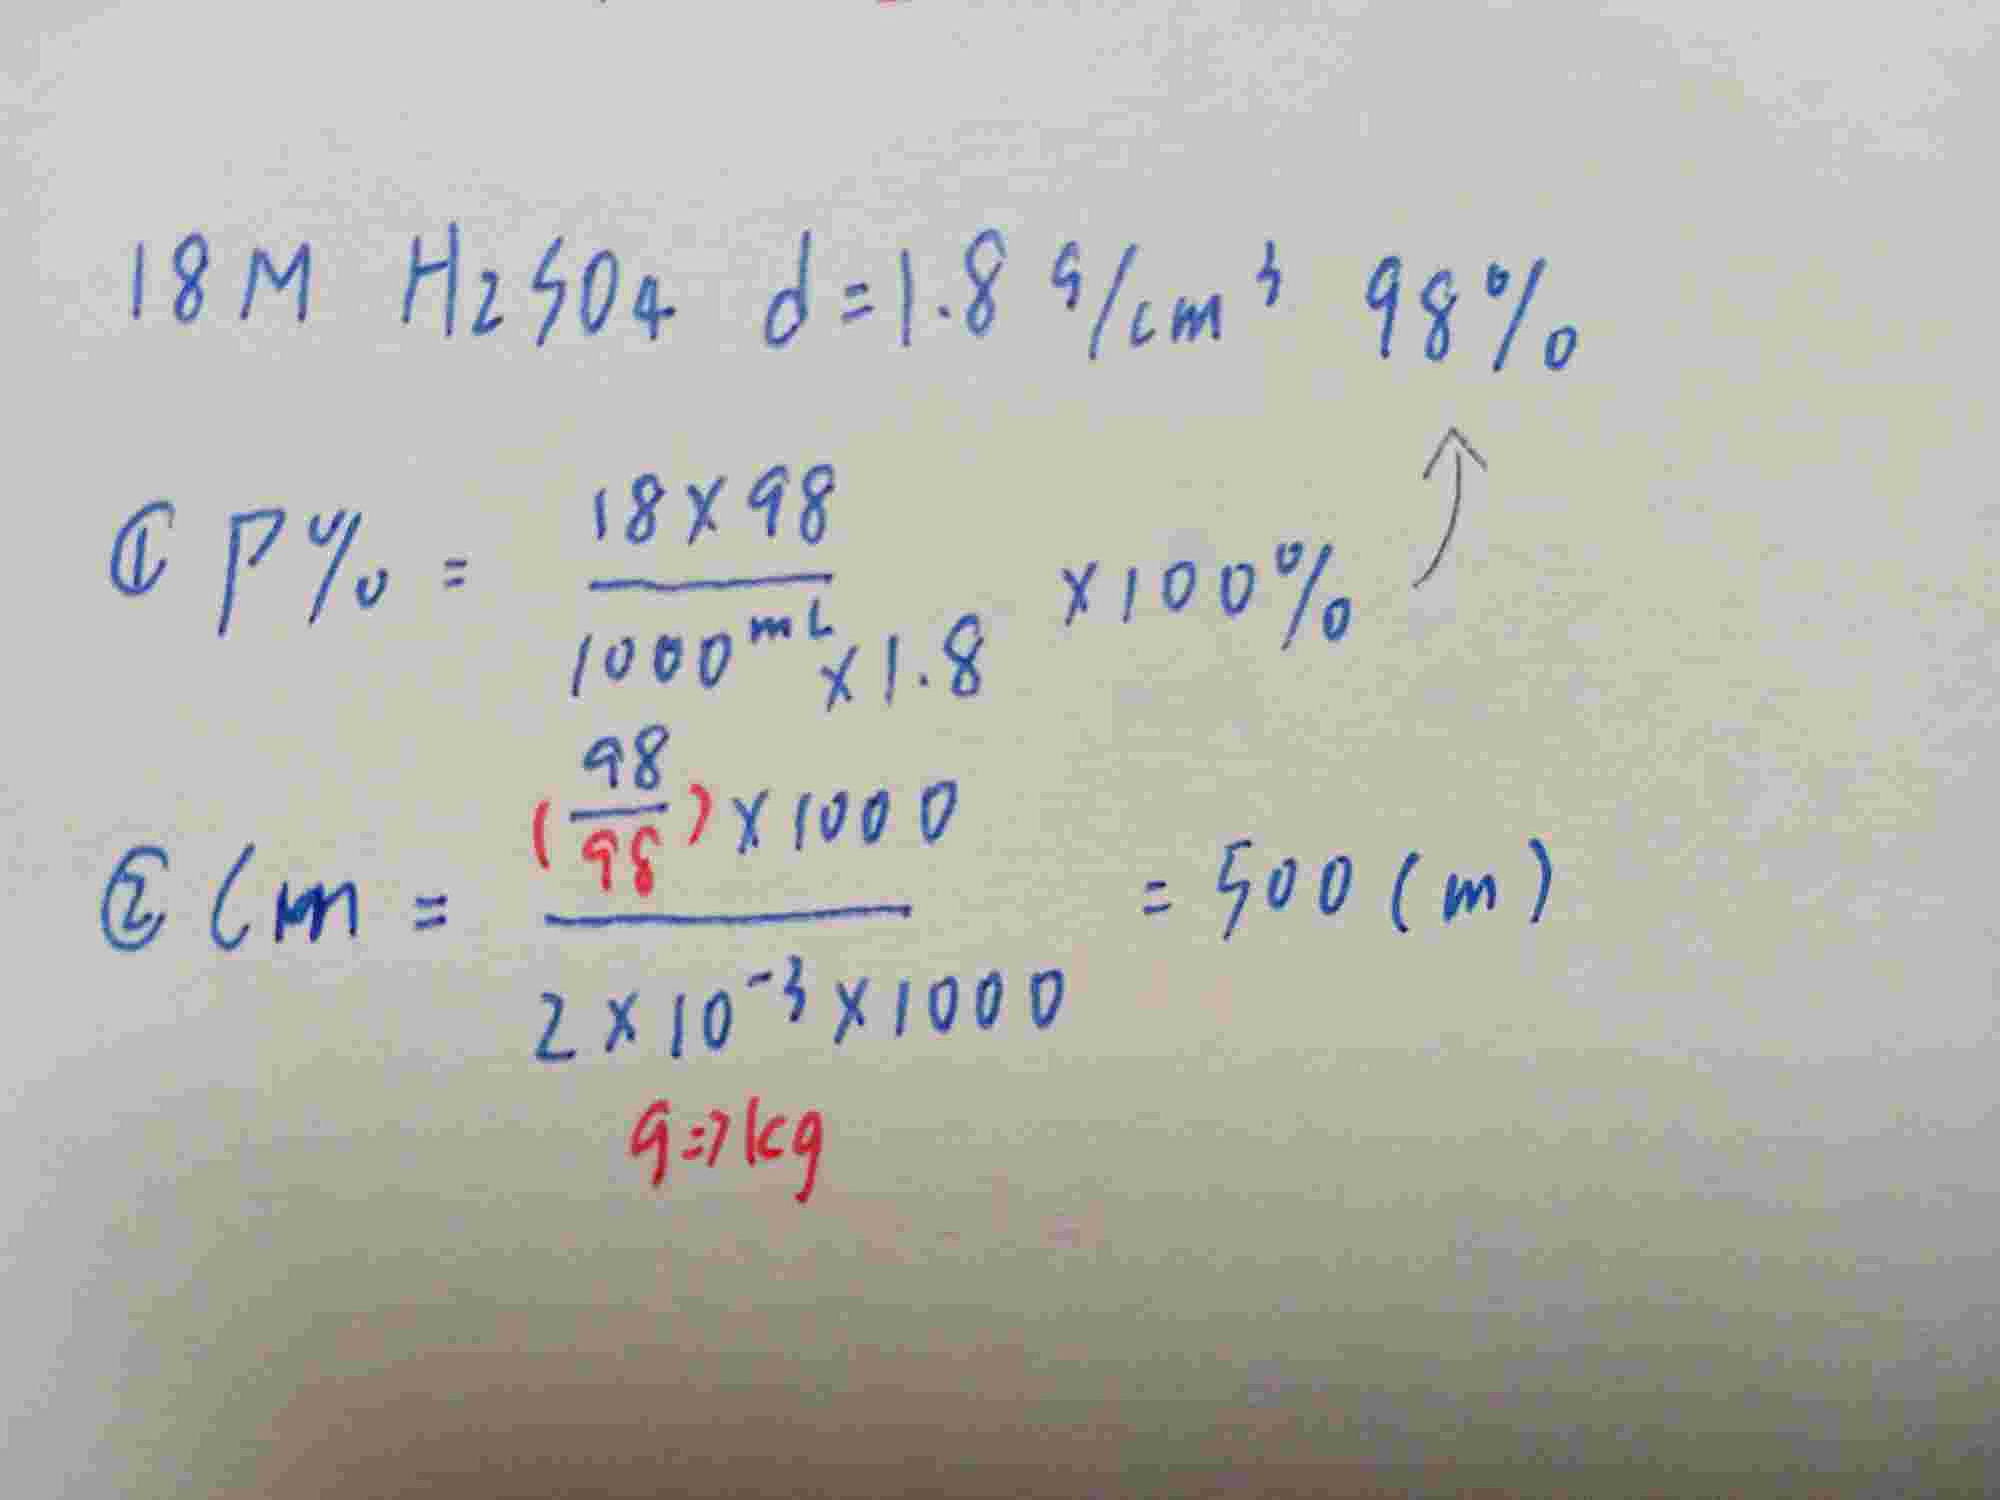 18M H2SO4 d=1.8 g/cm³ 98%
① P% = 18×98 / 1000mL×1.8 ×100%
② Cm = (98/98)×1000 / 2×10⁻³×1000 = 500 (m)
g=>kg